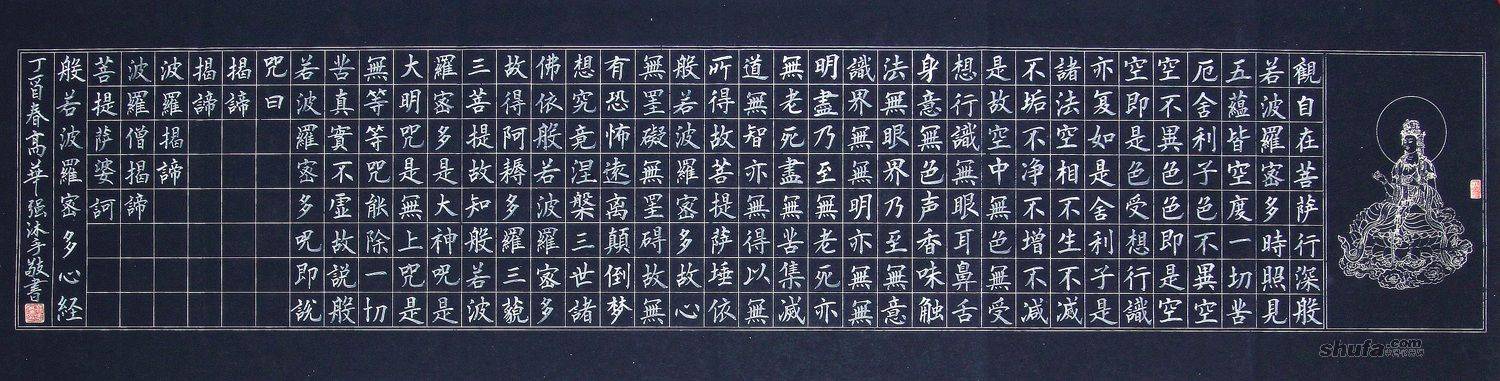 觀自在菩薩行深般
若波羅密多時照見
五蘊皆空度一切苦
厄舍利子色不異空
空不異色色即是空
空即是色受想行識
亦复如是舍利子是
諸法空相不生不滅
不垢不净不增不减
是故空中無色無受
想行識無眼耳鼻舌
身意無色声香味触
法無眼界乃至無意
識界無無明亦無無
明盡乃至無老死亦
無老死盡無苦集滅
道無智亦無得以無
所得故菩提薩埵依
般若波羅密多故心
無罣礙無罣碍故無
有恐怖遠离顛倒梦
想究竟涅槃三世諸
佛依般若波羅密多
故得阿耨多羅三藐
三菩提故知般若波
羅密多是大神咒是
大明咒是無上咒是
無等等咒能除一切
苦真實不虛故說般
若波羅密多咒即說
咒曰
揭諦
揭諦
波羅揭諦
波羅僧揭諦
菩提薩婆訶
般若波羅密多心経
丁酉春高華强沐手敬書
shufa.com